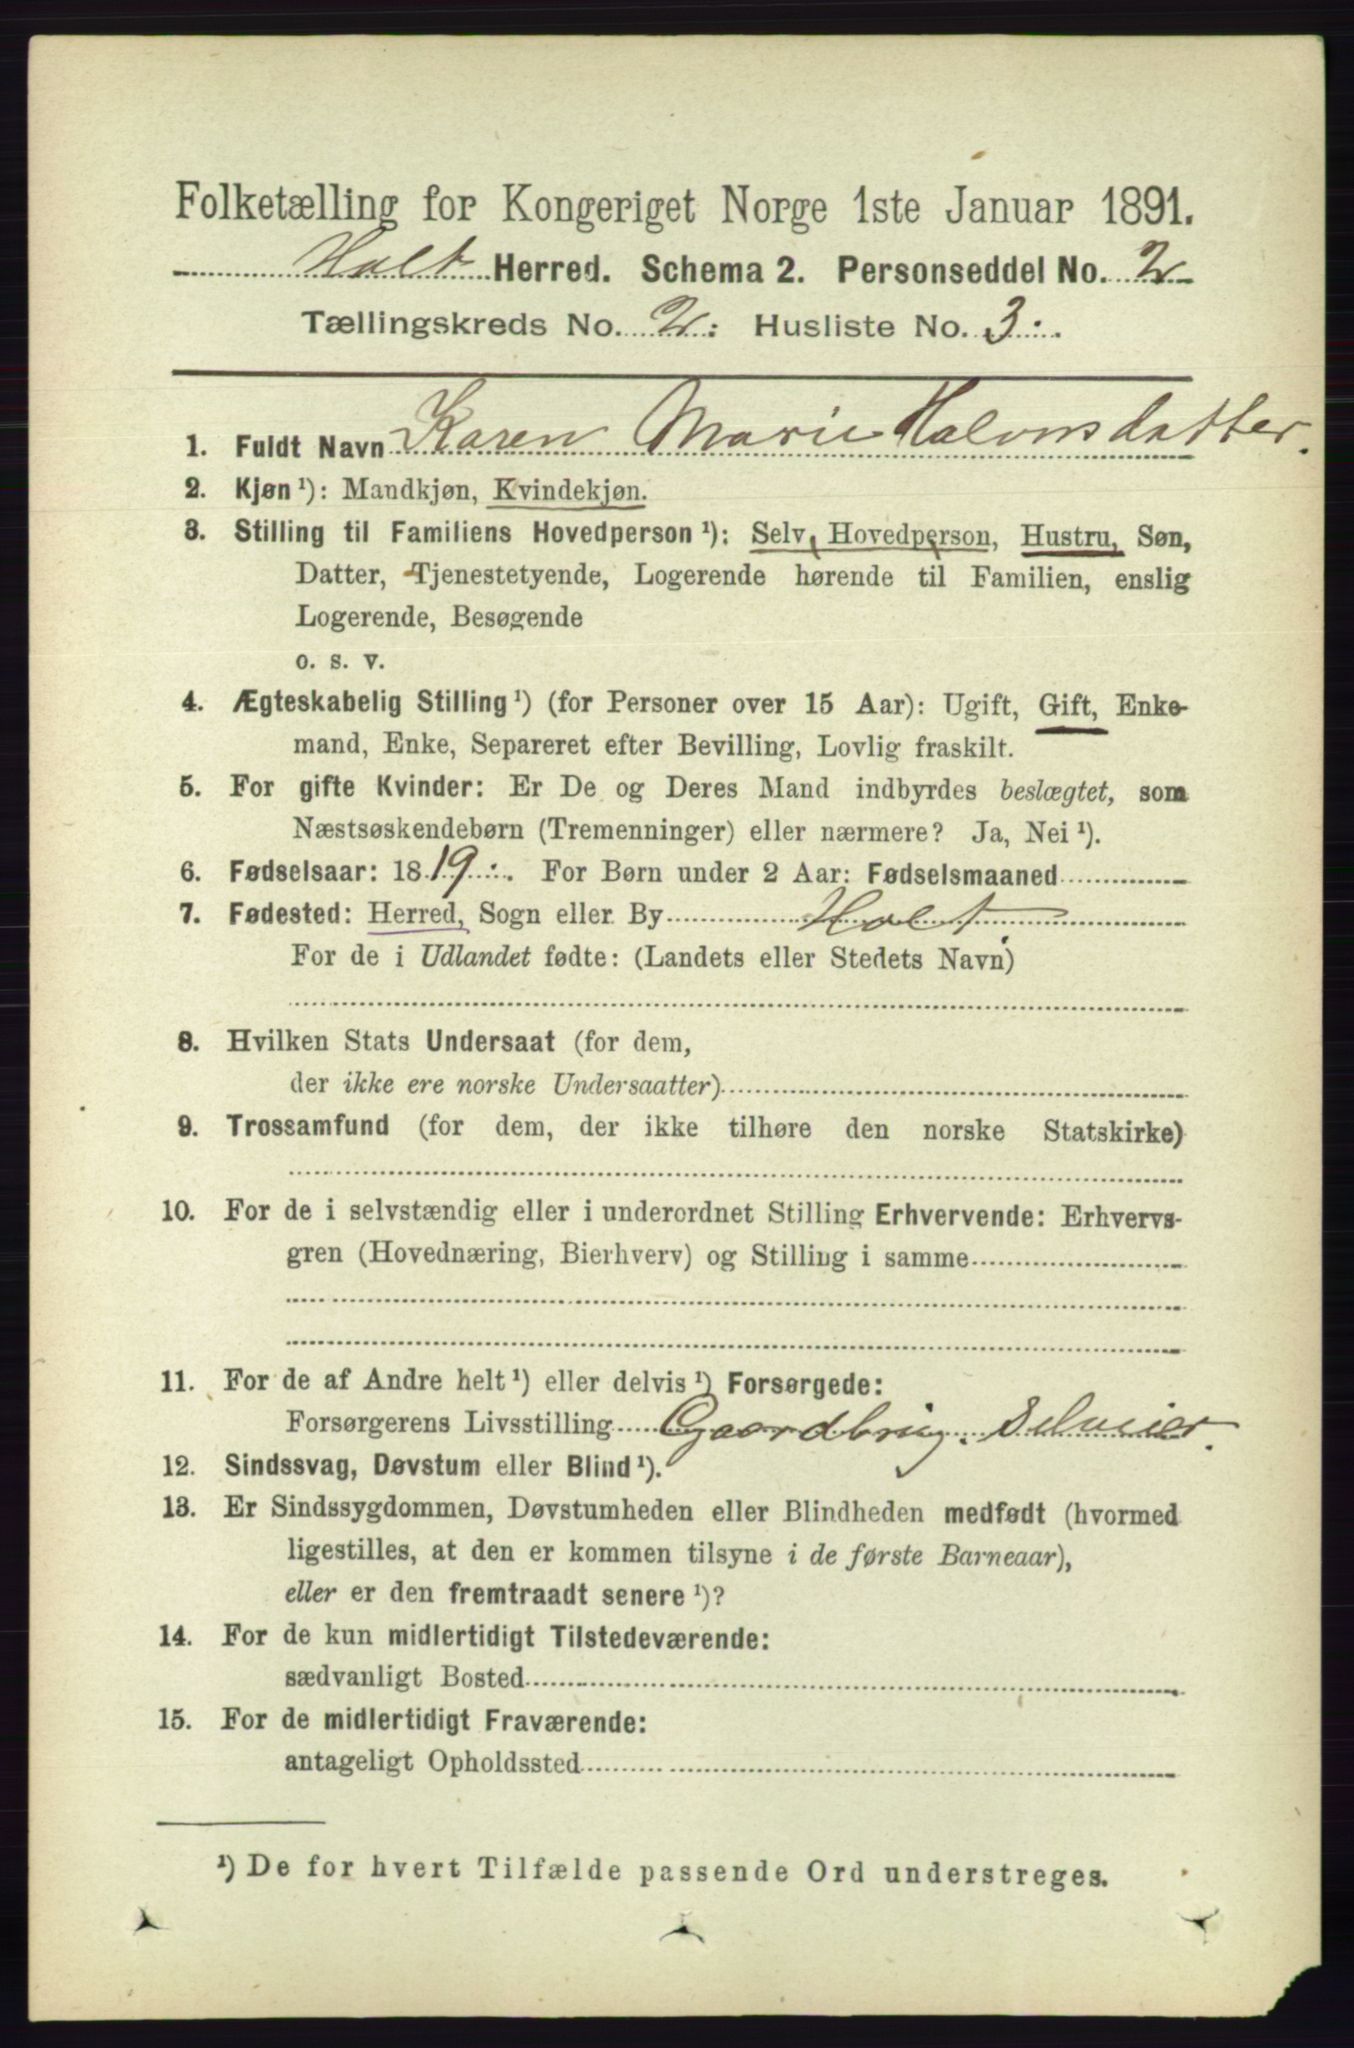 Folketælling for Kongeriget Norge 1ste Januar 1891.
Holt Herred. Schema 2. Personseddel No. 2
Tællingskreds No. 2: Husliste No. 3:.
1. Fuldt Navn Karen Marie Halvorsdatter.
2. Kjøn¹): Mandkjøn, Kvindekjøn.
3. Stilling til Familiens Hovedperson¹): Selv Hovedperson, Hustru, Søn,
Datter, Tjenestetyende, Logerende hørende til Familien, enslig
Logerende, Besøgende
o. s. v.
4. Ægteskabelig Stilling¹) (for Personer over 15 Aar): Ugift, Gift, Enke-
mand, Enke, Separeret efter Bevilling, Lovlig fraskilt.
5. For gifte Kvinder: Er De og Deres Mand indbyrdes beslægtet, som
Næstsøskendebørn (Tremenninger) eller nærmere? Ja, Nei¹).
6. Fødselsaar: 1819. For Børn under 2 Aar: Fødselsmaaned
7. Fødested: Herred, Sogn eller By Holt
For de i Udlandet fødte: (Landets eller Stedets Navn)
8. Hvilken Stats Undersaat (for dem,
der ikke ere norske Undersaatter)
9. Trossamfund (for dem, der ikke tilhøre den norske Statskirke)
10. For de i selvstændig eller i underordnet Stilling Erhvervende: Erhvervs-
gren (Hovednæring, Bierhverv) og Stilling i samme
11. For de af Andre helt¹) eller delvis¹) Forsørgede:
Forsørgerens Livsstilling Gaardbrug. Selveier.
12. Sindssvag, Døvstum eller Blind¹).
13. Er Sindssygdommen, Døvstumheden eller Blindheden medfødt (hvormed
ligestilles, at den er kommen tilsyne i de første Barneaar),
eller er den fremtraadt senere¹)?
14. For de kun midlertidigt Tilstedeværende:
sædvanligt Bosted
15. For de midlertidigt Fraværende:
antageligt Opholdssted
¹) De for hvert Tilfælde passende Ord understreges.